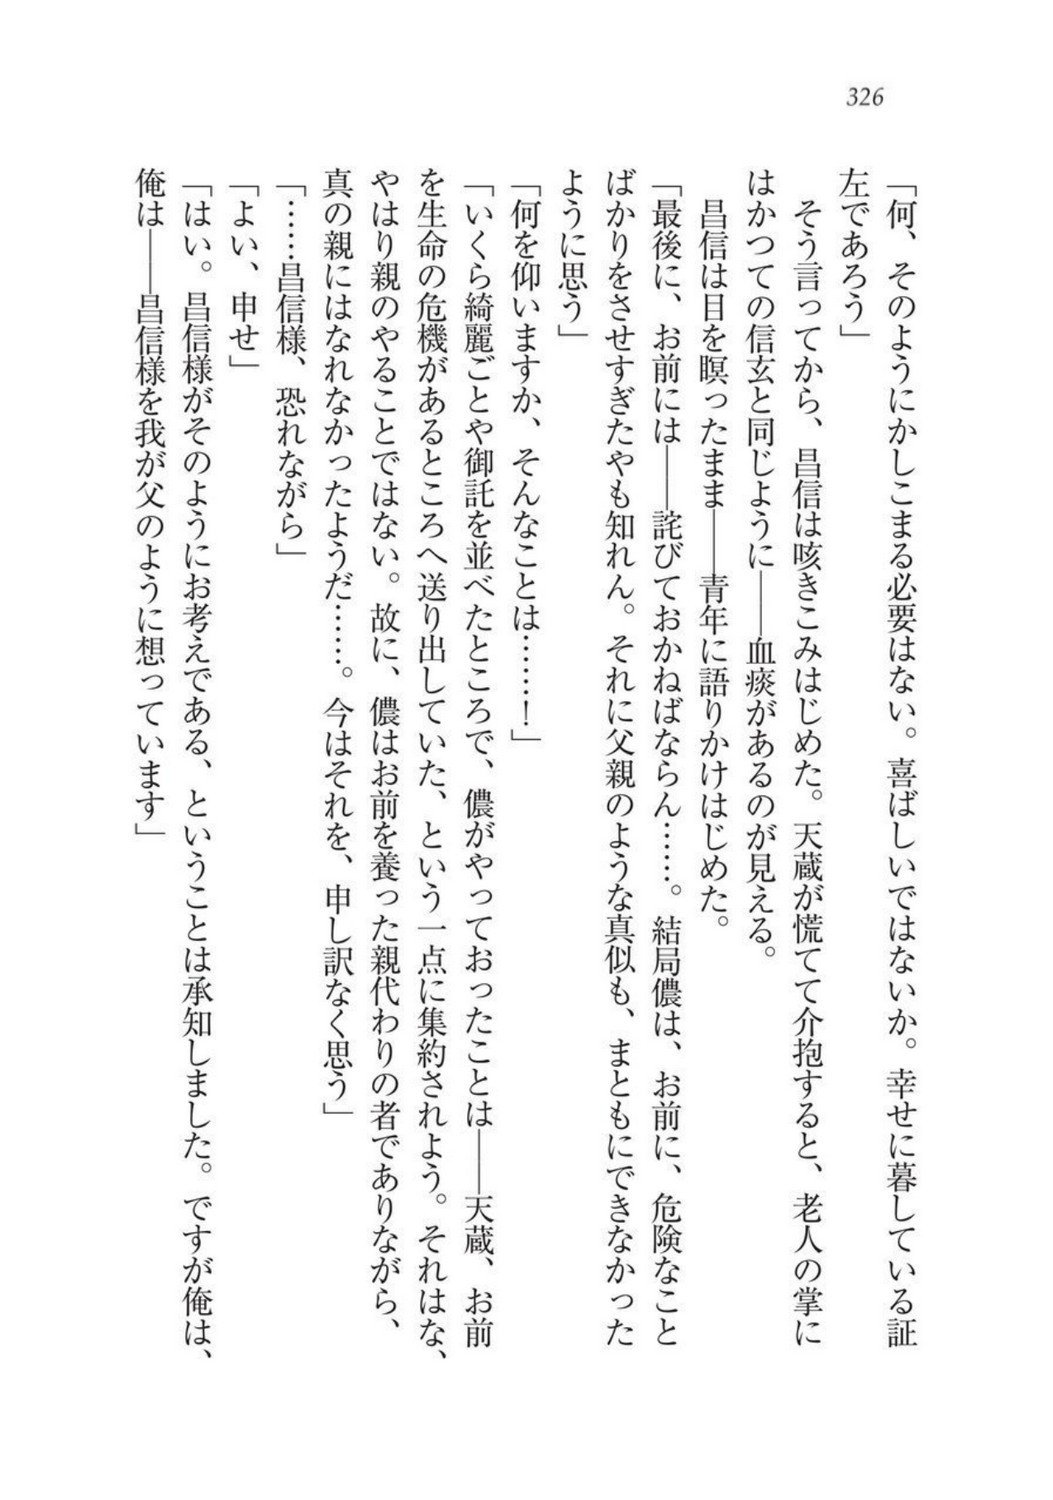 326
「何、そのようにかしこまる必要はない。喜ばしいではないか。幸せに暮している証
左であろう」
　そう言ってから、昌信は咳きこみはじめた。天蔵が慌てて介抱すると、老人の掌に
はかつての信玄と同じように――血痰があるのが見える。
　昌信は目を瞑ったまま――青年に語りかけはじめた。
「最後に、お前には――詫びておかねばならん……。結局儂は、お前に、危険なこと
ばかりをさせすぎたやも知れん。それに父親のような真似も、まともにできなかった
ように思う」
「何を仰いますか、そんなことは……！」
「いくら綺麗ごとや御託を並べたところで、儂がやっておったことは――天蔵、お前
を生命の危機があるところへ送り出していた、という一点に集約されよう。それはな、
やはり親のやることではない。故に、儂はお前を養った親代わりの者でありながら、
真の親にはなれなかったようだ……。今はそれを、申し訳なく思う」
「……昌信様、恐れながら」
「よい、申せ」
「はい。昌信様がそのようにお考えである、ということは承知しました。ですが俺は、
俺は――昌信様を我が父のように想っています」